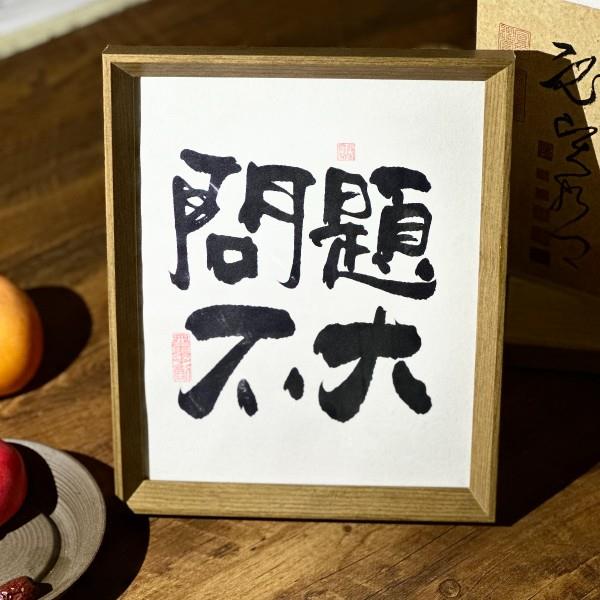 問題
不大